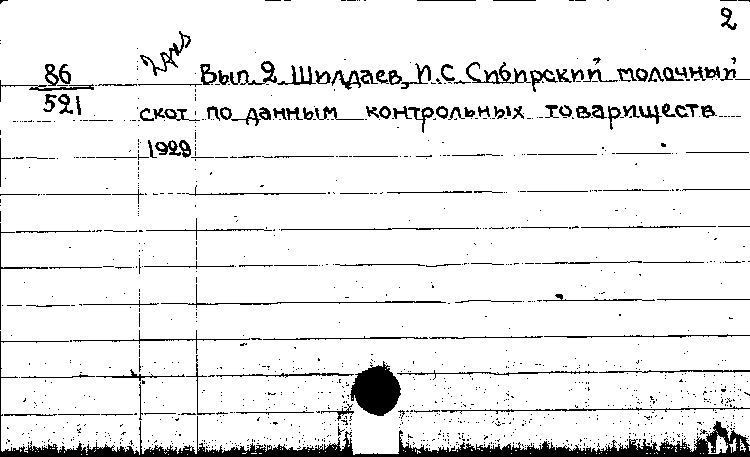 2
86 2 экз Вып. 2. Шилдаев, П.С. Сибирский молочный
521 скот по данным контрольных товариществ
1929